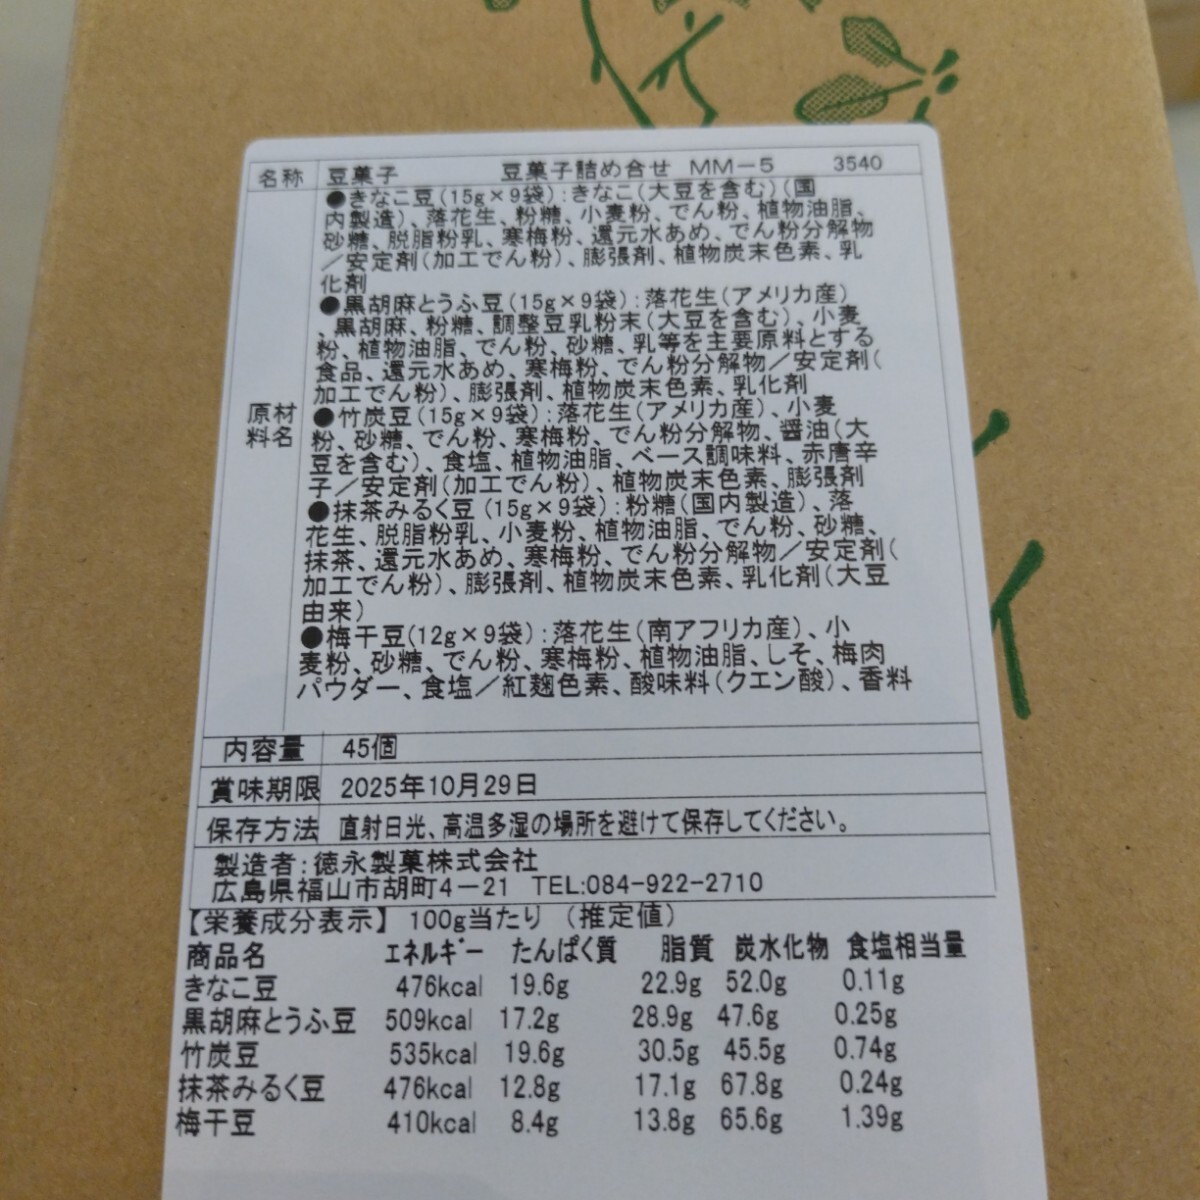 名称 豆菓子 豆菓子詰め合せ MM－5 3540
原材料名
●きなこ豆(15g×9袋):きなこ(大豆を含む)(国
内製造)、落花生、粉糖、小麦粉、でん粉、植物油脂、
砂糖、脱脂粉乳、寒梅粉、還元水あめ、でん粉分解物
／安定剤(加工でん粉)、膨張剤、植物炭末色素、乳
化剤
●黒胡麻とうふ豆(15g×9袋):落花生(アメリカ産)
、黒胡麻、粉糖、調整豆乳粉末(大豆を含む)、小麦
粉、植物油脂、でん粉、砂糖、乳等を主要原料とする
食品、還元水あめ、寒梅粉、でん粉分解物／安定剤(
加工でん粉)、膨張剤、植物炭末色素、乳化剤
●竹炭豆(15g×9袋):落花生(アメリカ産)、小麦
粉、砂糖、でん粉、寒梅粉、でん粉分解物、醤油(大
豆を含む)、食塩、植物油脂、ベース調味料、赤唐辛
子／安定剤(加工でん粉)、植物炭末色素、膨張剤
●抹茶みるく豆(15g×9袋):粉糖(国内製造)、落
花生、脱脂粉乳、小麦粉、植物油脂、でん粉、砂糖、
抹茶、還元水あめ、寒梅粉、でん粉分解物／安定剤(
加工でん粉)、膨張剤、植物炭末色素、乳化剤(大豆
由来)
●梅干豆(12g×9袋):落花生(南アフリカ産)、小
麦粉、砂糖、でん粉、寒梅粉、植物油脂、しそ、梅肉
パウダー、食塩／紅麹色素、酸味料(クエン酸)、香料
内容量 45個
賞味期限 2025年10月29日
保存方法 直射日光、高温多湿の場所を避けて保存してください。
製造者:徳永製菓株式会社
広島県福山市胡町4－21 TEL:084-922-2710
【栄養成分表示】 100g当たり (推定値)
商品名 エネルギー たんぱく質 脂質 炭水化物 食塩相当量
きなこ豆 476kcal 19.6g 22.9g 52.0g 0.11g
黒胡麻とうふ豆 509kcal 17.2g 28.9g 47.6g 0.25g
竹炭豆 535kcal 19.6g 30.5g 45.5g 0.74g
抹茶みるく豆 476kcal 12.8g 17.1g 67.8g 0.24g
梅干豆 410kcal 8.4g 13.8g 65.6g 1.39g